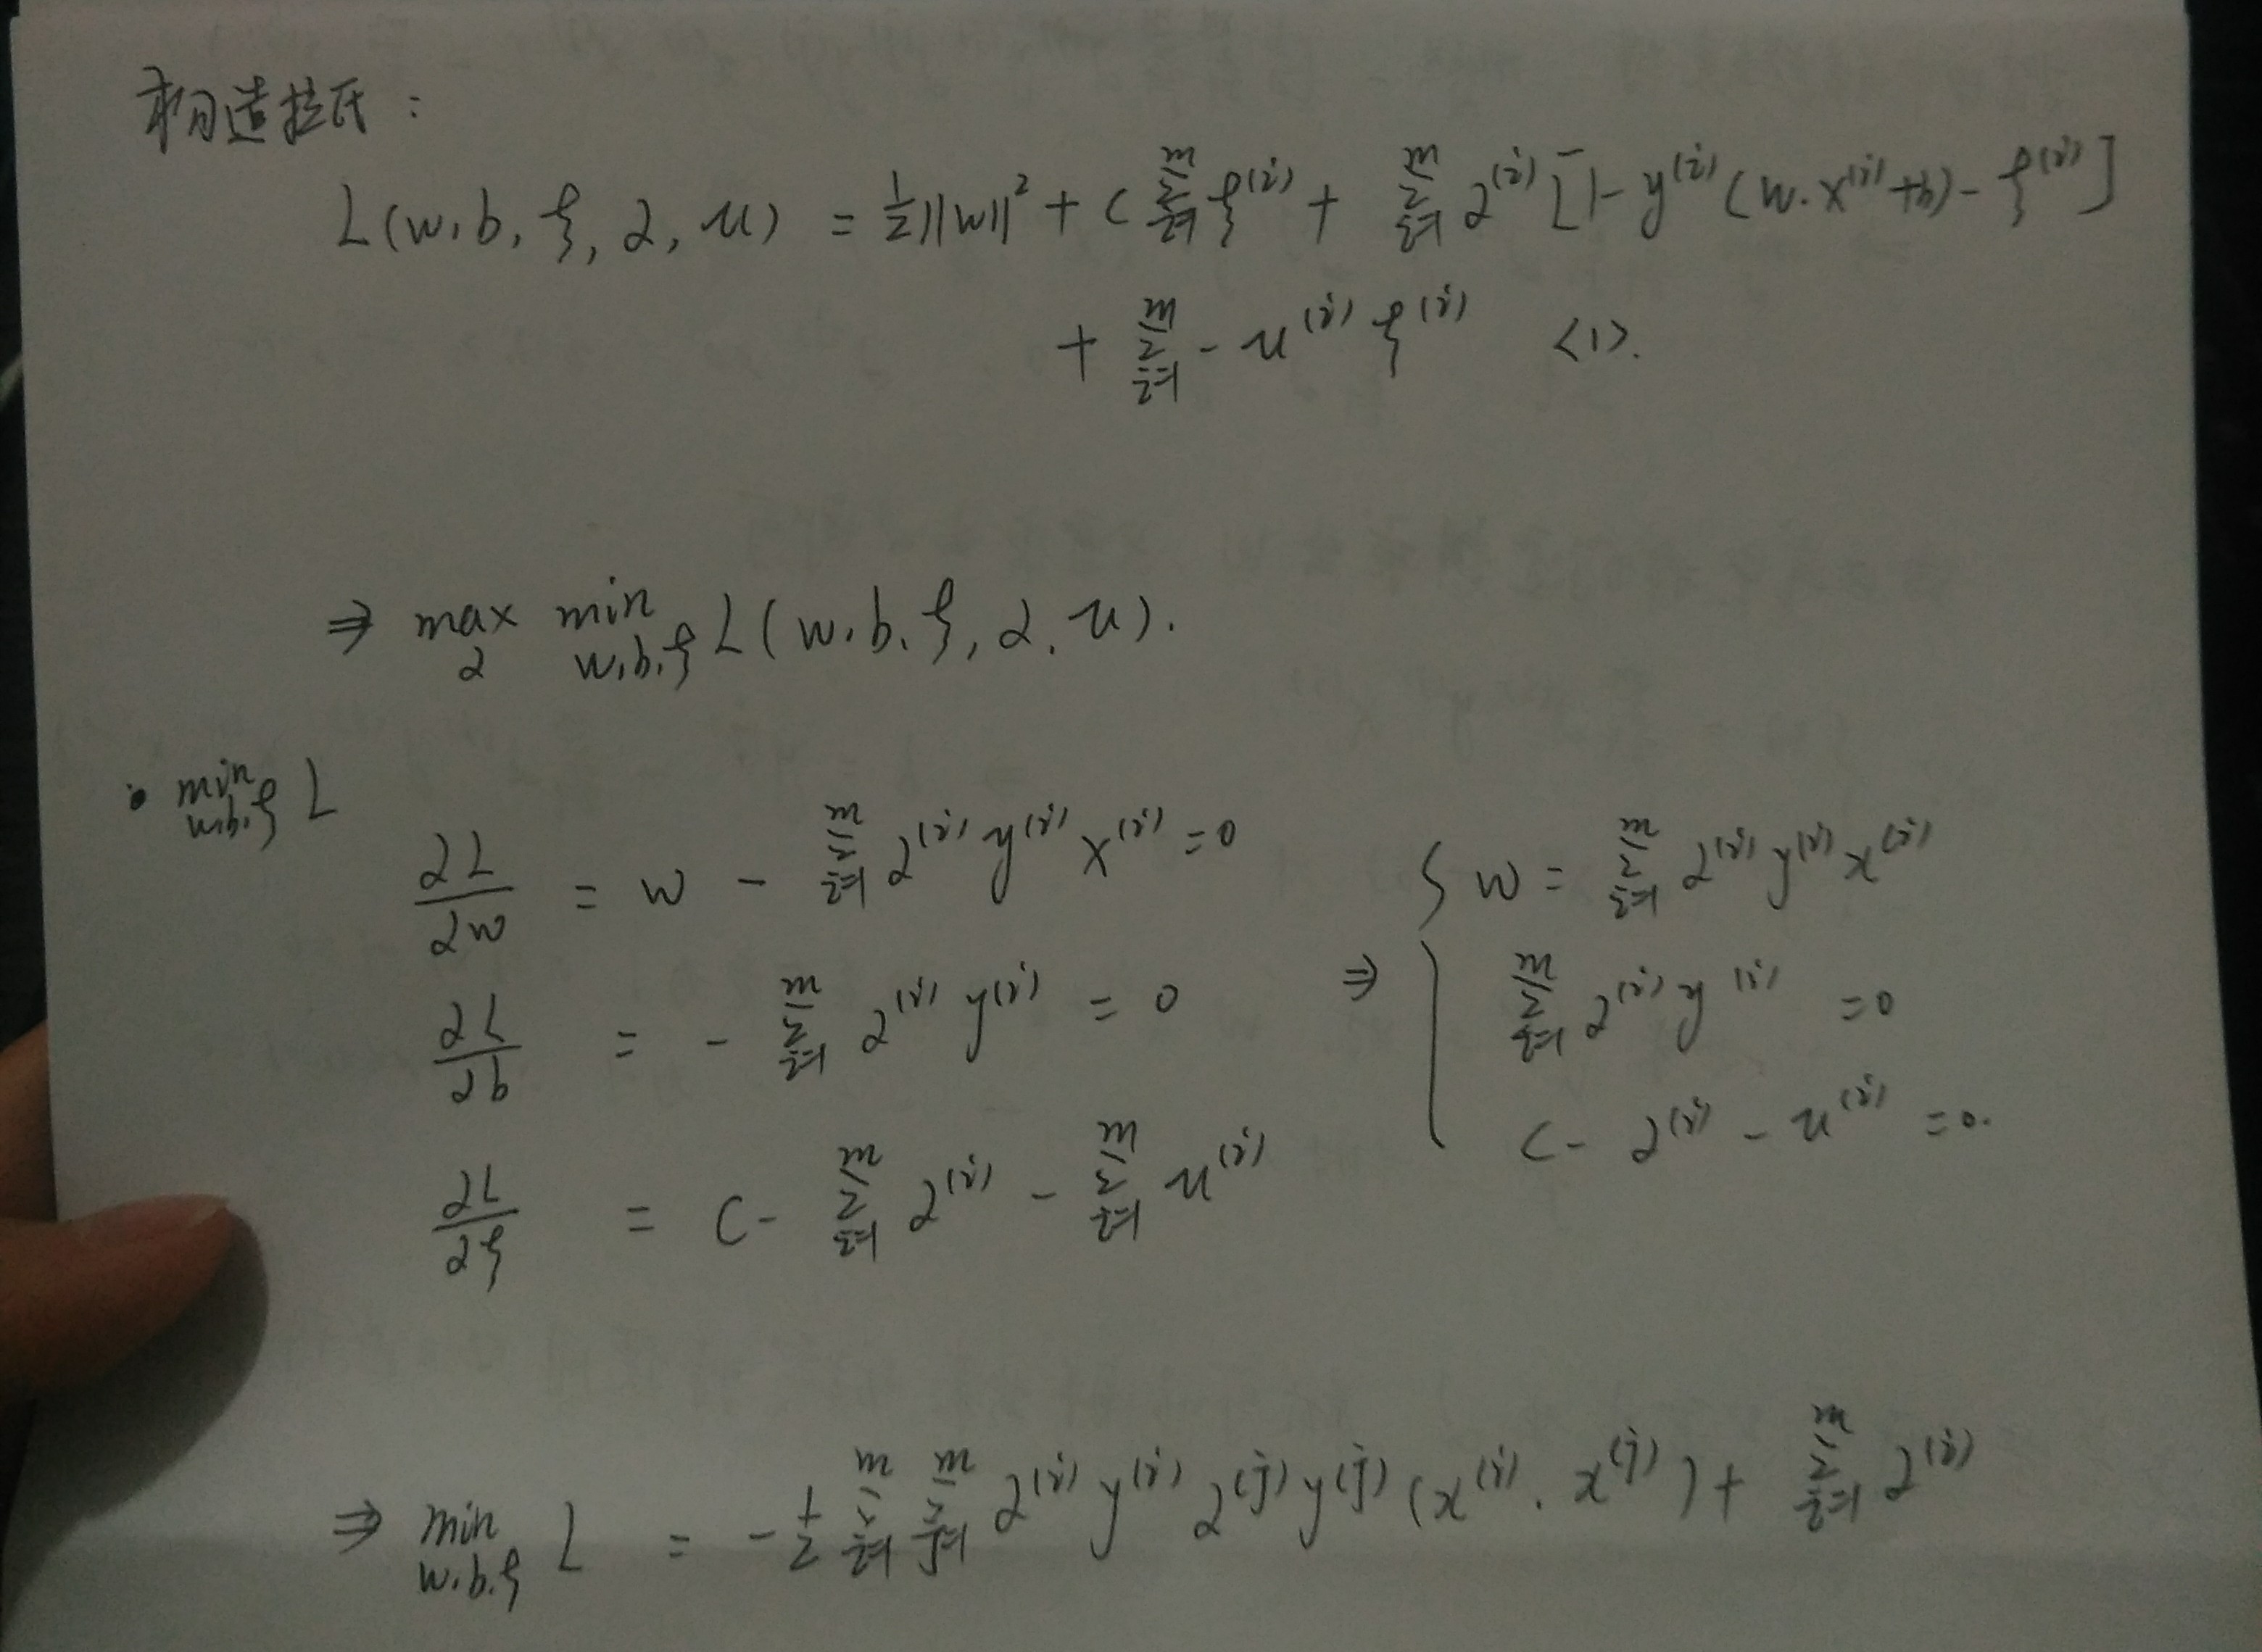 构造拉氏:
L(w,b,ξ,α,u) = ½||w||² + C Σ_{i=1}^{m} ξ^{(i)} + Σ_{i=1}^{m} α^{(i)} [1 - y^{(i)} (w·x^{(i)} + b) - ξ^{(i)}]
+ Σ_{i=1}^{m} - u^{(i)} ξ^{(i)} <1>.
⇒ max_{α} min_{w,b,ξ} L(w,b,ξ,α,u).
• min_{w,b,ξ} L
∂L/∂w = w - Σ_{i=1}^{m} α^{(i)} y^{(i)} x^{(i)} = 0
∂L/∂b = - Σ_{i=1}^{m} α^{(i)} y^{(i)} = 0
∂L/∂ξ = C - Σ_{i=1}^{m} α^{(i)} - Σ_{i=1}^{m} u^{(i)}
⇒ { w = Σ_{i=1}^{m} α^{(i)} y^{(i)} x^{(i)}
Σ_{i=1}^{m} α^{(i)} y^{(i)} = 0
C - α^{(i)} - u^{(i)} = 0.
⇒ min_{w,b,ξ} L = -½ Σ_{i=1}^{m} Σ_{j=1}^{m} α^{(i)} y^{(i)} α^{(j)} y^{(j)} (x^{(i)}·x^{(j)}) + Σ_{i=1}^{m} α^{(i)}